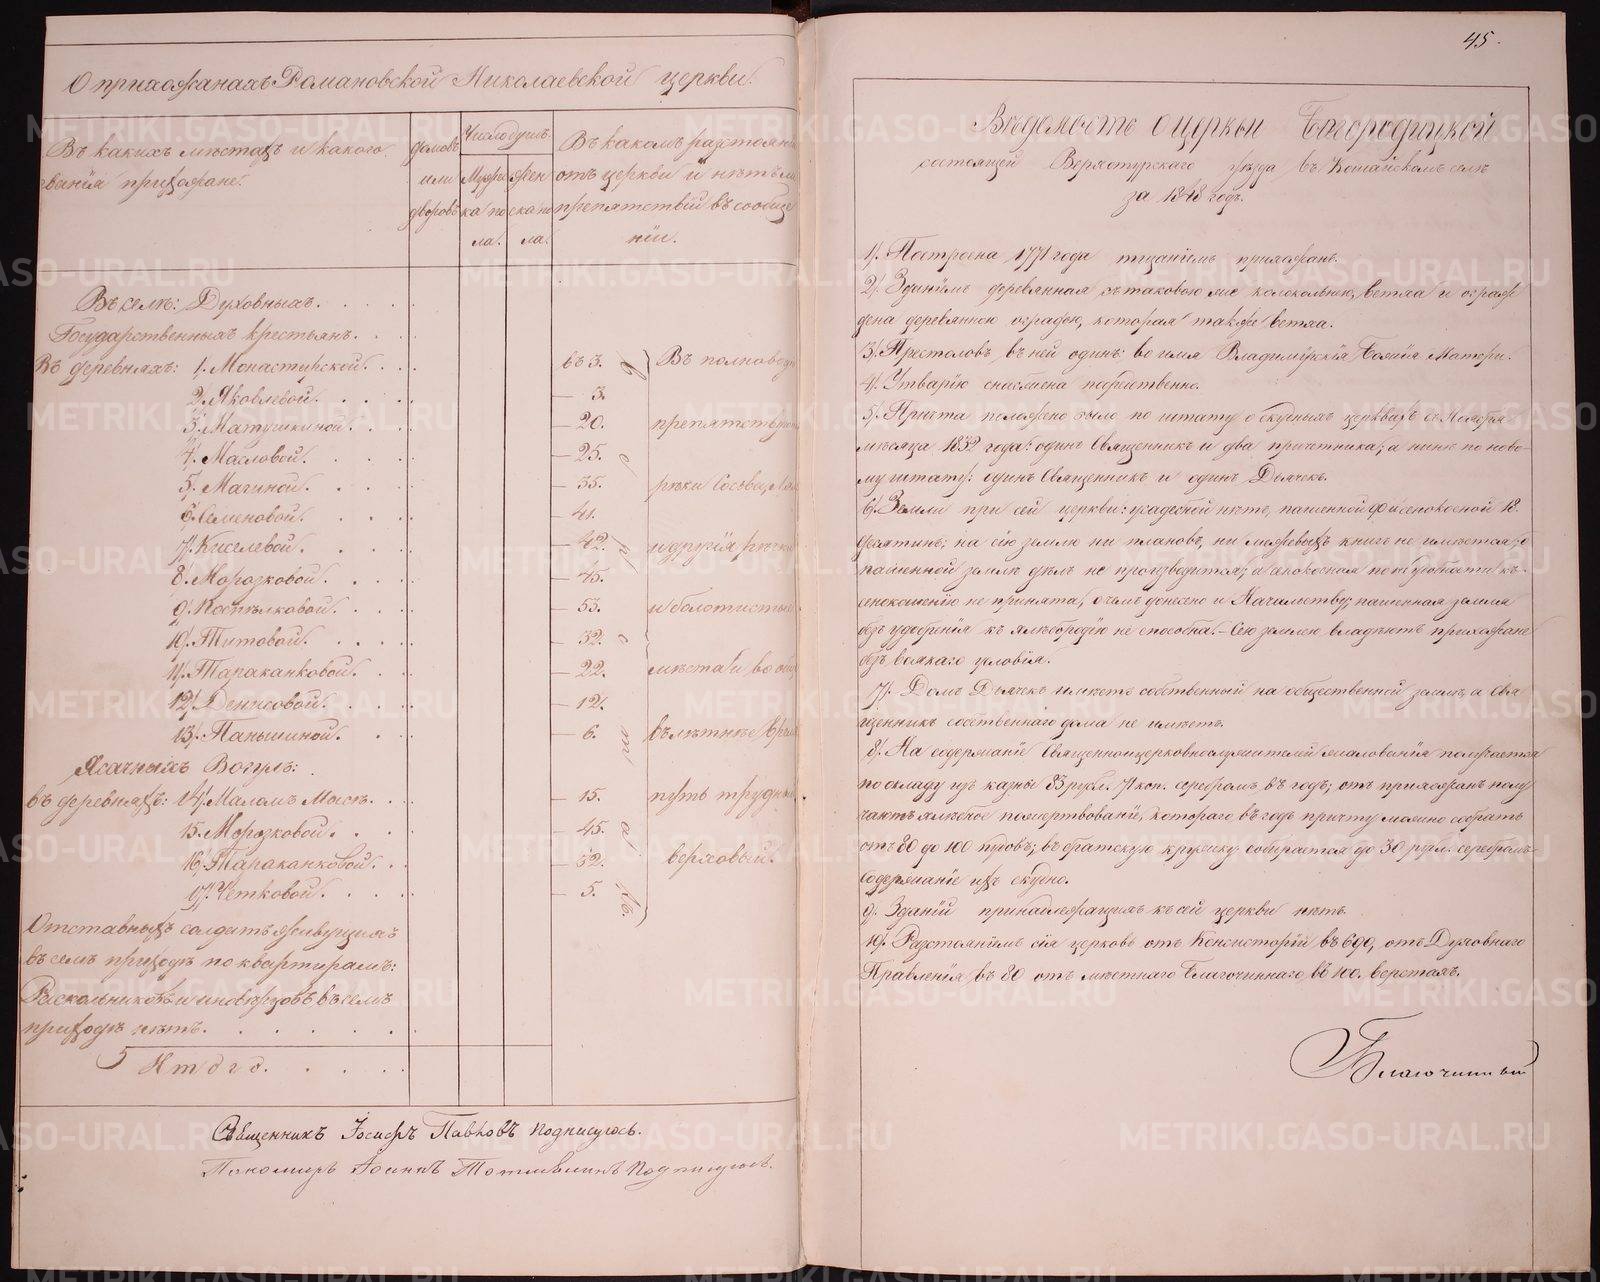 О прихожанахъ Романовской Николаевской церкви.
Въ какихъ мѣстахъ и какого
званія прихожане.
домовъ
или
дворовъ
Число душъ
Мужес
ка по
ла.
жен
ска по
ла.
Въ какомъ разстояні
отъ церкви и нѣтъ ли
препятствій въ сообще
ніи.
Въ селѣ: Духовныхъ.
Государственныхъ крестьянъ.
Въ деревняхъ: 1. Монастырской. въ 3. Въ полноводі
2. Яковлевой. — 3.
3. Матушкиной. — 20. препятствуютъ
4. Масловой. — 25.
5. Магиной. — 35. рѣки Сосьва, Ляля
6. Семеновой. — 41.
7. Киселевой. — 42. и другія рѣчки
8. Морозковой. — 45.
9. Коптѣлковой. — 53. и болотистыя
10. Титовой. — 32.
11. Тараканковой. — 22. мѣста и во общ
12. Денисовой. — 12.
13. Паньшиной. — 6. въ лѣтнѣе время
верстахъ.
Ясачныхъ Вогулъ:
въ деревняхъ: 14. Маломъ Мысѣ. — 15. путь трудный
15. Морозковой. — 45.
16. Тараканковой. — 32. верховый.
17. Четковой. — 5.
Отставныхъ солдатъ живущихъ
въ семъ приходѣ по квартирамъ:
Раскольниковъ и иновѣрцовъ въ семъ
приходѣ нѣтъ.
Итого.
Священникъ Іосифъ Павловъ подписуюсь.
Пономарь Іоаннъ подписуюсь.
45.
Вѣдомость о церкви Богородицкой,
состоящей Верхотурскаго уѣзда въ Кошайскомъ селѣ
за 1848 годъ.
1). Построена 1771 года тщаніемъ прихожанъ.
2). Зданіемъ деревянная съ таковою же колокольнею, ветха и ограж
дена деревянною оградою, которая также ветха.
3). Престоловъ въ ней одинъ: во имя Владимірскія Божія Матери.
4). Утварію снабжена посредственно.
5). Причта положено было по штату о скудныхъ церквахъ съ Ноября
мѣсяца 1832 года: одинъ Священникъ и два причетника; а нынѣ по ново-
му штату: одинъ Священникъ и одинъ Дьячекъ.
6). Земли при сей церкви: усадебной нѣтъ, пашенной и сѣнокосной 18.
десятинъ; на сію землю ни плановъ, ни межевыхъ книгъ не имѣется; о
пашенной землѣ дѣлъ не производится; а сенокосная по неудобности къ
сенокошенію не принята, о чемъ донесено и Начальству; пашенная земля
безъ удобренія къ хлѣбородію не способна. – Сею землею владѣютъ прихожане
безъ всякаго условія.
7). Домъ Дьячекъ имѣетъ собственный на общественной землѣ, а Свя
щенникъ собственнаго дома не имѣетъ.
8). На содержаніе Священноцерковнослужителей жалованія получается
по окладу изъ казны 83 рубл. 71 коп. серебромъ въ годъ; отъ прихожанъ полу
чаютъ хлѣбное пожертвованіе, котораго въ годъ причту можно собрать
отъ 80 до 100 пудовъ; въ братскую кружку собирается до 30 рубл. серебромъ.
Содержаніе ихъ скудно.
9). Зданій принадлежащихъ къ сей церкви нѣтъ.
10). Разстояніемъ сія церковь отъ Консисторіи въ 690, отъ Духовнаго
Правленія въ 80 отъ мѣстнаго Благочиннаго въ 100. верстахъ.
Благочинный
METRIKI.GASO-URAL.RU